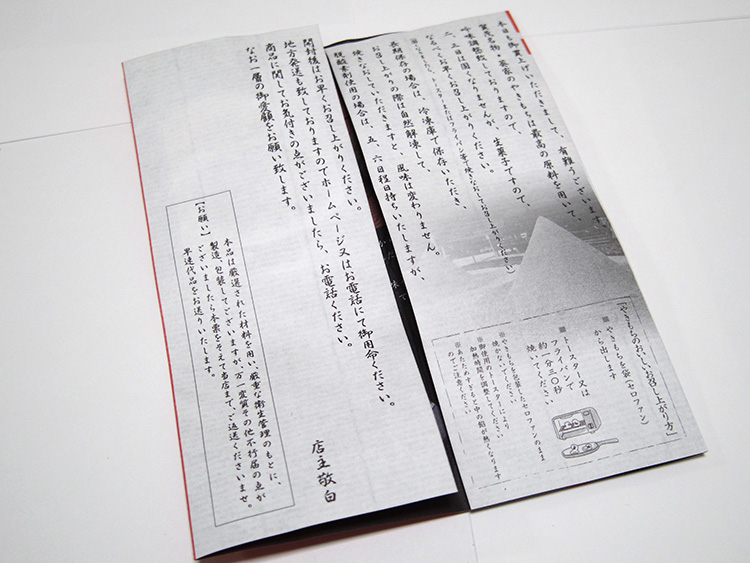 本日も御買上げいただきまして、有難うございます。
賀茂名物・葵家のやきもちは最高の原料を用いて、
吟味調整致しておりますので、
二、三日は固くなりませんが、生菓子ですので、
なるべくお早くお召し上がりください。
長期保存の場合は、冷凍庫で保存いただき、
お召し上がりの際は自然解凍して、
焼きなおしていただきますと、風味は変わりません。
脱酸素剤使用の場合は、五、六日程日持ちいたしますが、
開封後はお早くお召し上がりください。
地方発送も致しておりますのでホームページ又はお電話にて御用命ください。
商品に関してお気付きの点がございましたら、お電話ください。
なお一層の御愛顧をお願い致します。
店主敬白
【お願い】
本品は厳選された材料を用い、厳重な衛生管理のもとに、
製造、包装してございますが、万一変質その他不行届の点が
ございましたら本票をそえて当店まで、ご返送くださいませ。
早速代品をお送りいたします。
【やきもちのおいしいお召し上がり方】
■やきもちを袋(セロファン)
から出します
■トースター又は
フライパンで
約一分三〇秒
焼いてください
※やきもちを包装したセロファンのまま
焼かないでください
※御使用のトースターにより
加熱時間を調整ください
※あたためすぎもと中の餡が熱くなります
のでご注意ください